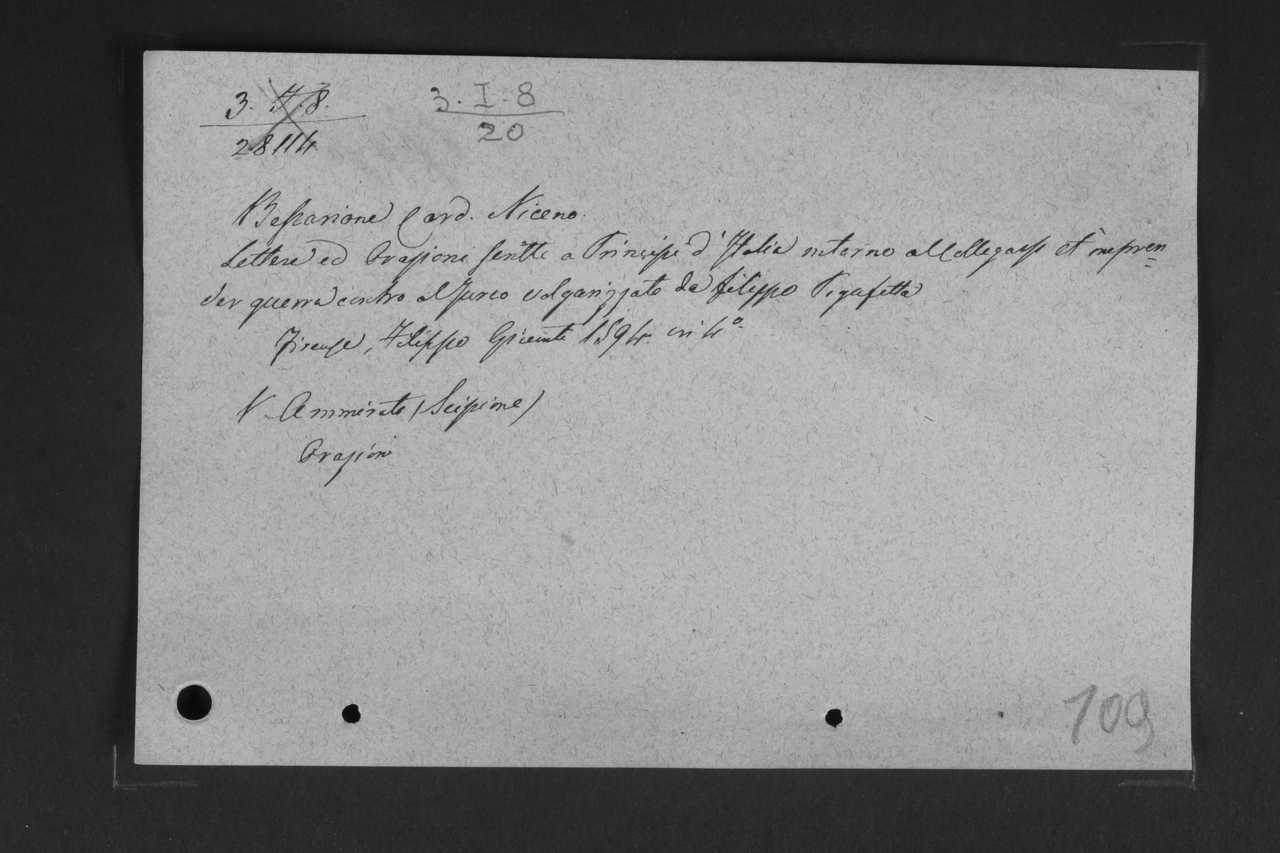 3. I. 8. 3. I. 8
28114 20
Bessarione Card. Niceno.
Lettere ed Orazioni scritte a Principi d'Italia intorno al Collegarsi et impren=
der guerra contro al Turco volgarizzate da Filippo Pigafetta
Firenze, Filippo Giunti 1594. in 4º.
V. Ammirato (Scipione)
Orazioni
109